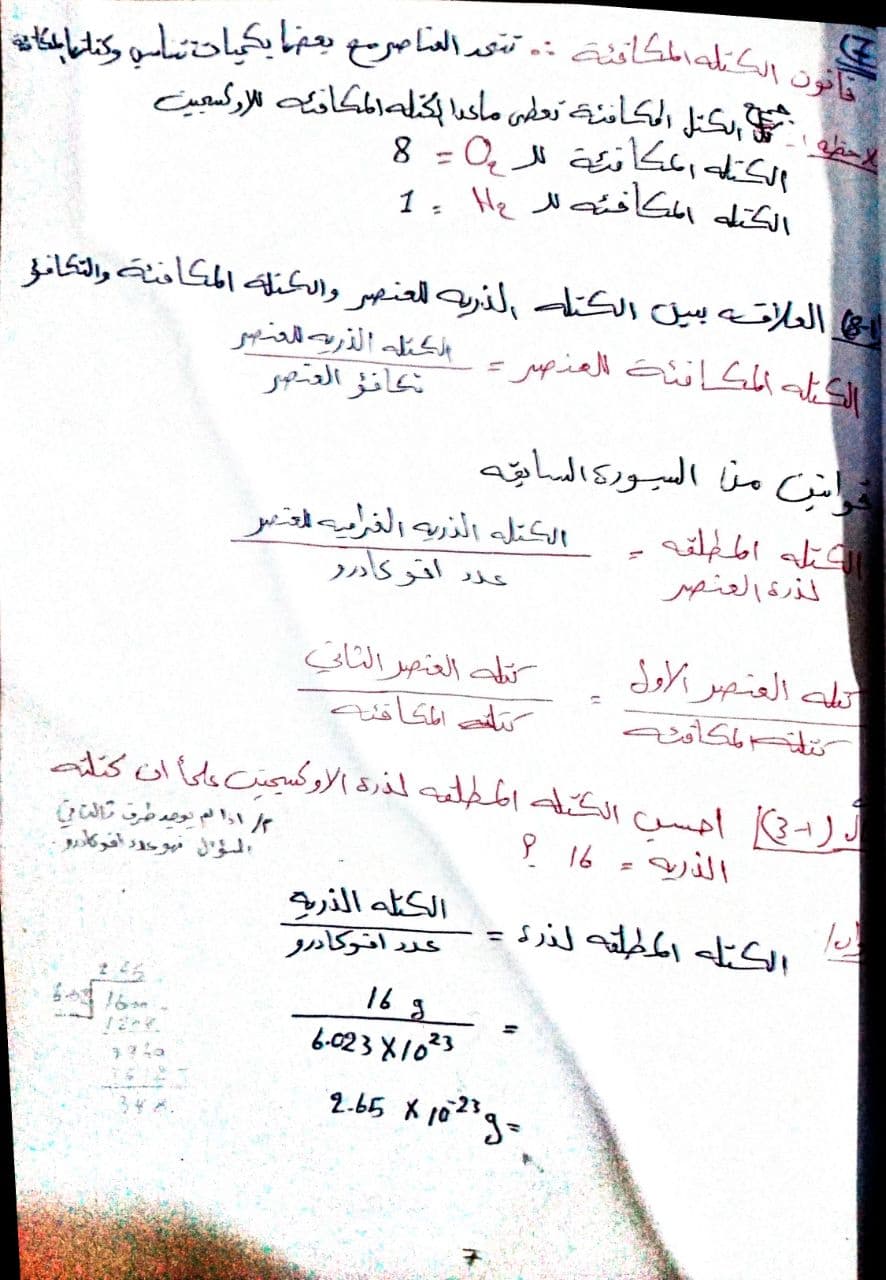 (7
قانون الكتله المكافئة :- تتحد العناصر مع بعضا بكميات تناسب وكتلتها المكافئة
ملاحظه :- جميع الكتل المكافئة تعطى ماعدا الكتله المكافئه للاوكسجين
الكتله المكافئة لـ O2 = 8
الكتله المكافئه لـ H2 = 1
(8-1) العلاقه بين الكتله الذريه للعنصر والكتلة المكافئة والتكافؤ
الكتله المكافئة للعنصر = الكتله الذريه للعنصر
تكافؤ العنصر
قوانين من السبورة السابقه
الكتله المطلقه = الكتله الذريه الغراميه للعنصر
لذرة العنصر عدد افوكادرو
كتله العنصر الاول = كتله العنصر الثاني
كتلته المكافئه كتلته المكافئه
(3-1) احسب الكتله المطلقه لذرة الاوكسجين علماً ان كتلته
الذريه = 16 ؟
م/ اذا لم يوجد طرف ثالث في
السؤال فهو عدد افوكادرو
الكتله المطلقه لذرة = الكتله الذريه
عدد افوكادرو
= 16 g
6.023 X 10²³
2.65 X 10⁻²³ g =
7